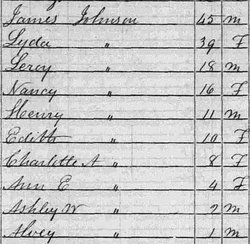 James Johnson 45 m
Lyda " 39 F
Leroy " 18 m
Nancy " 16 F
Henry " 11 m
Edith " 10 F
Charlotte A " 8 F
Ann E " 4 F
Ashley W " 2 m
Alvey " 1 m